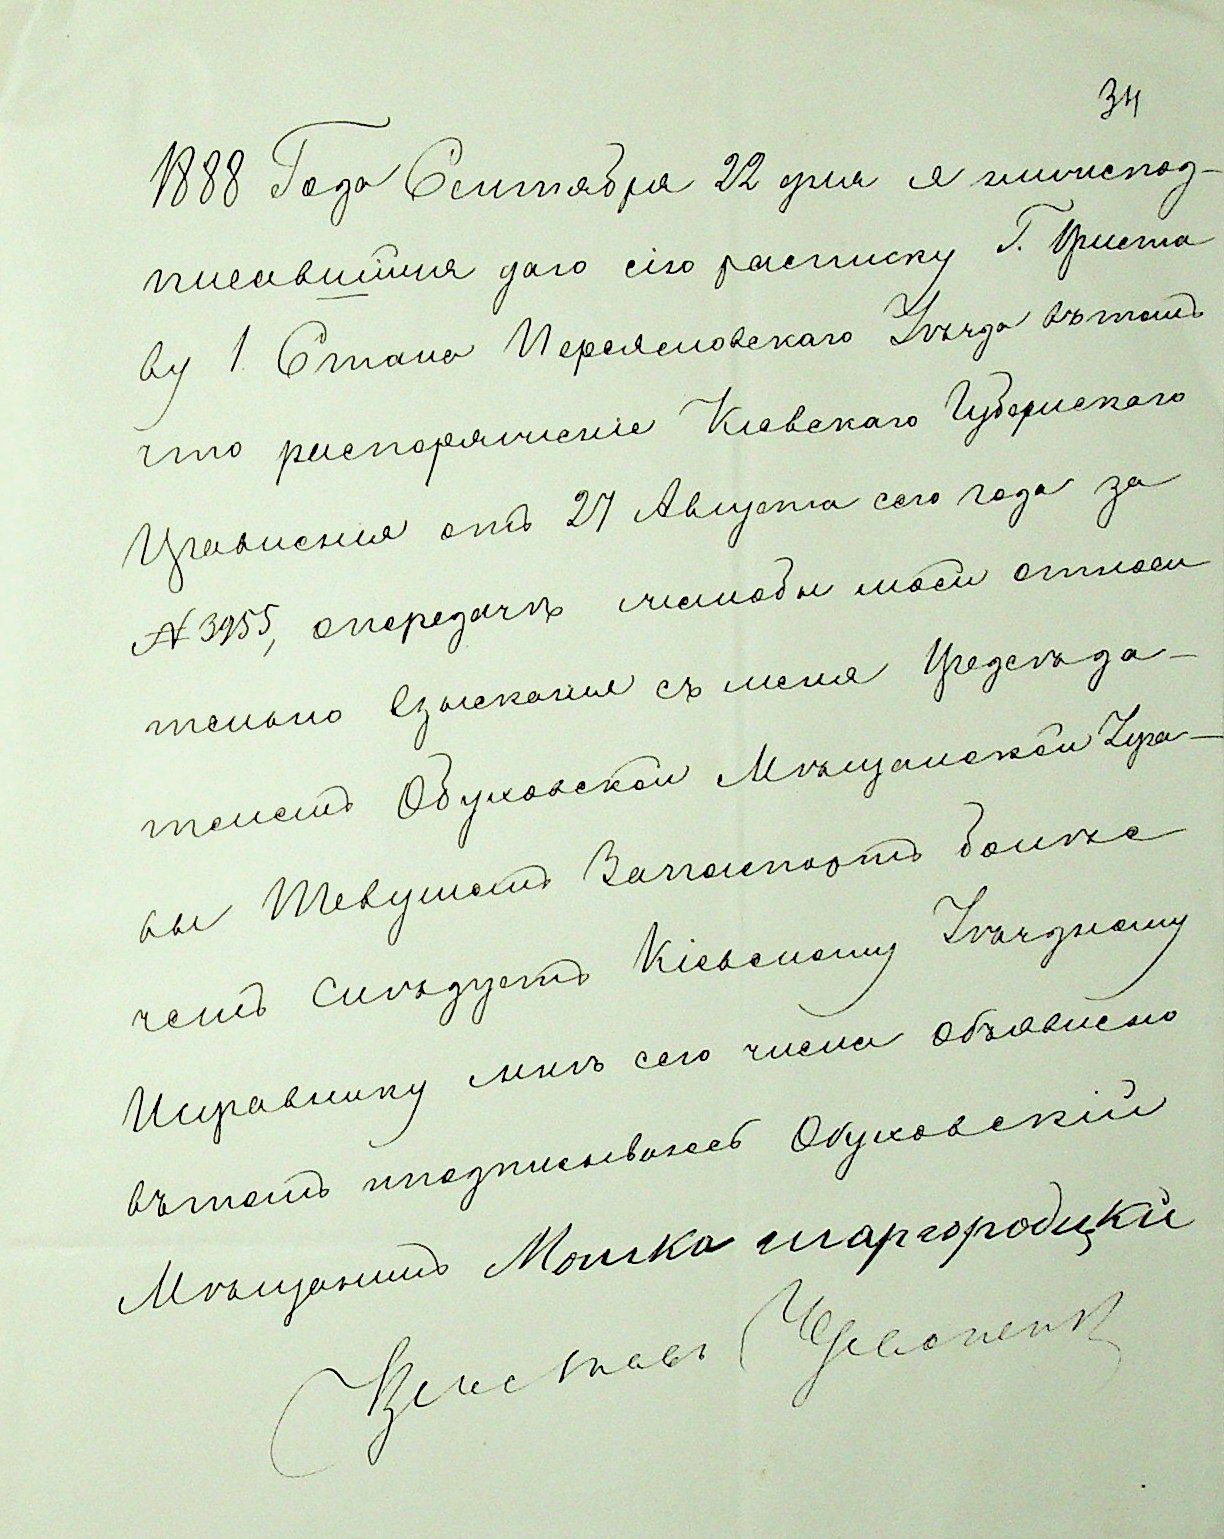 34
1888 Года Сентября 22 дня я нижепод-
писавшійся даю сію расписку Г. Приста
ву 1 Стана Переясловскаго Уѣзда вътомъ
что распоряжение Киевскаго Губернскаго
Правления отъ 27 Августа сего года за
№ 3955, опередачѣ жалобы моей относи
тельно взыскания съ меня Предсѣда-
телемъ Обуховской Мѣщанской Упра-
вы Шевушемъ Запаспортъ болѣе
чемъ слѣдуетъ Кіевскому Уѣздному
Исправнику мнѣ сего числа объявлено
вътомъ иподписываюсь Обуховскій
Мѣщанинъ Мошка шаргородцкй
Приставъ